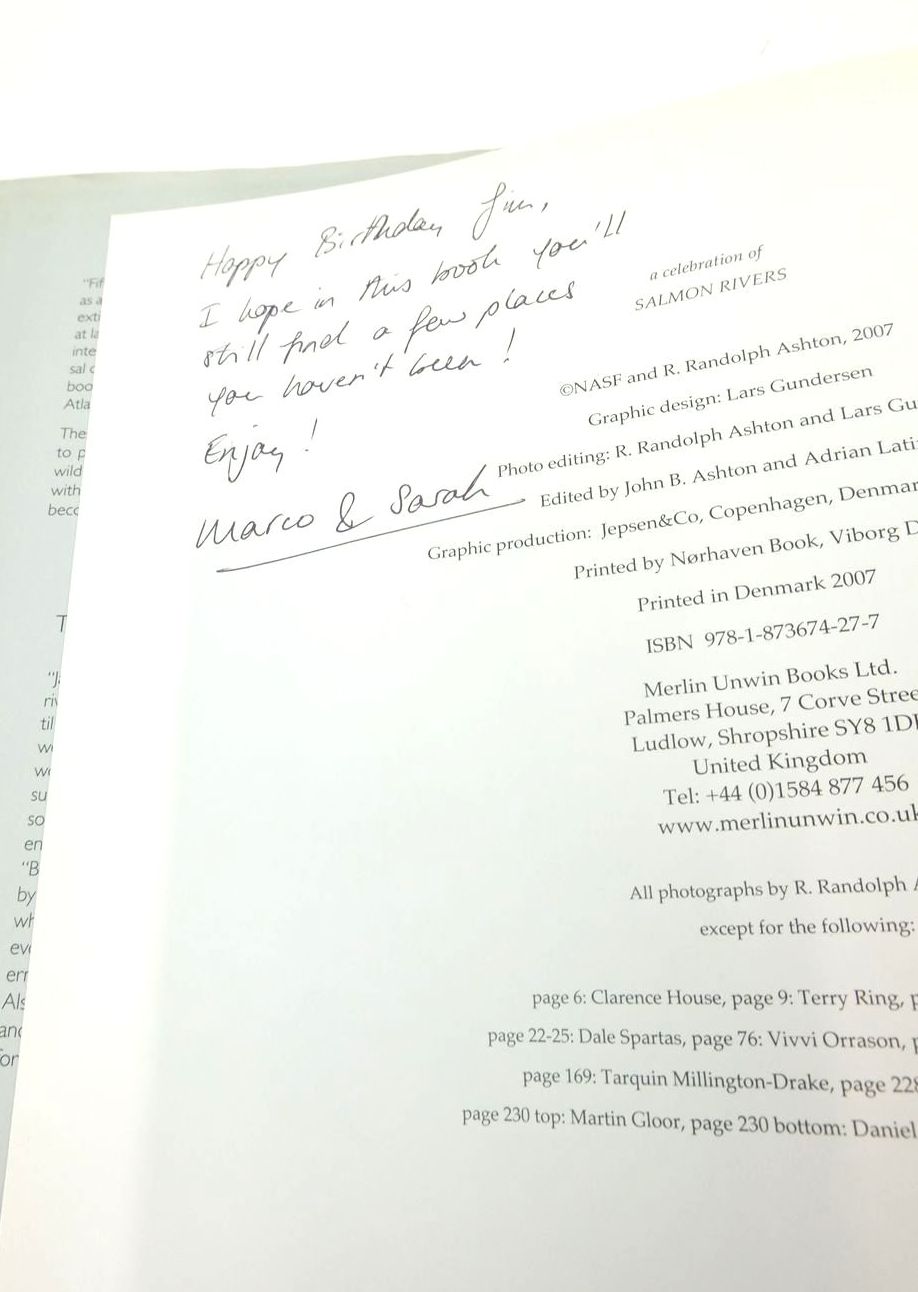 Happy Birthday Jim,
I hope in this book you'll
still find a few places
you haven't been!
Enjoy!
Marco & Sarah
a celebration of
SALMON RIVERS
©NASF and R. Randolph Ashton, 2007
Graphic design: Lars Gundersen
Photo editing: R. Randolph Ashton and Lars Gu
Edited by John B. Ashton and Adrian Lati
Graphic production: Jepsen&Co, Copenhagen, Denmar
Printed by Nørhaven Book, Viborg D
Printed in Denmark 2007
ISBN 978-1-873674-27-7
Merlin Unwin Books Ltd.
Palmers House, 7 Corve Stree
Ludlow, Shropshire SY8 1D
United Kingdom
Tel: +44 (0)1584 877 456
www.merlinunwin.co.uk
All photographs by R. Randolph A
except for the following:
page 6: Clarence House, page 9: Terry Ring, p
page 22-25: Dale Spartas, page 76: Vivvi Orrason, p
page 169: Tarquin Millington-Drake, page 228
page 230 top: Martin Gloor, page 230 bottom: Daniel
"Fif
as a
exti
at la
inte
sal c
boo
Atla
The
to p
wild
with
becc
T
"J
riv
til
w
we
su
so
en
"B
by
wh
eve
err
Als
and
for